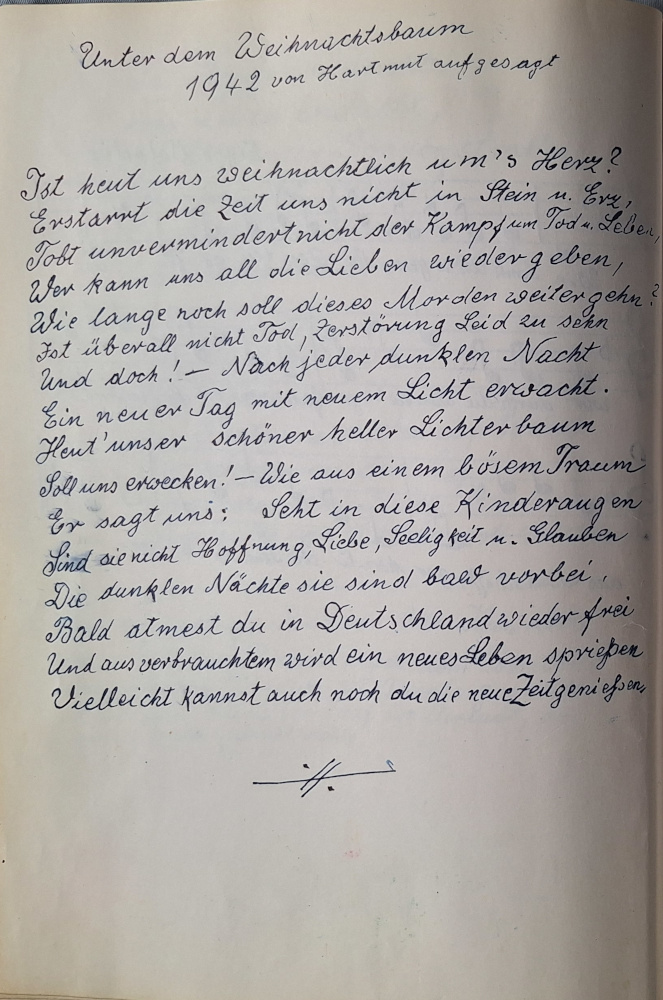 Unter dem Weihnachtsbaum
1942 von Hartmut aufgesagt
Ist heut uns weihnachtlich um's Herz?
Erstarrt die Zeit uns nicht in Stein u. Erz,
Tobt unvermindert nicht der Kampf um Tod u. Leben,
Wer kann uns all die Lieben wiedergeben,
Wie lange noch soll dieses Morden weitergehn?
Ist überall nicht Tod, Zerstörung Leid zu sehn
Und doch! – Nach jeder dunklen Nacht
Ein neuer Tag mit neuem Licht erwacht.
Heut' unser schöner heller Lichterbaum
Soll uns erwecken! – Wie aus einem bösem Traum
Er sagt uns: Seht in diese Kinderaugen
Sind sie nicht Hoffnung, Liebe, Seeligkeit u. Glauben
Die dunklen Nächte sie sind bald vorbei.
Bald atmest du in Deutschland wieder frei
Und aus verbrauchtem wird ein neues Leben sprießen
Vielleicht kannst auch noch du die neue Zeit genießen.